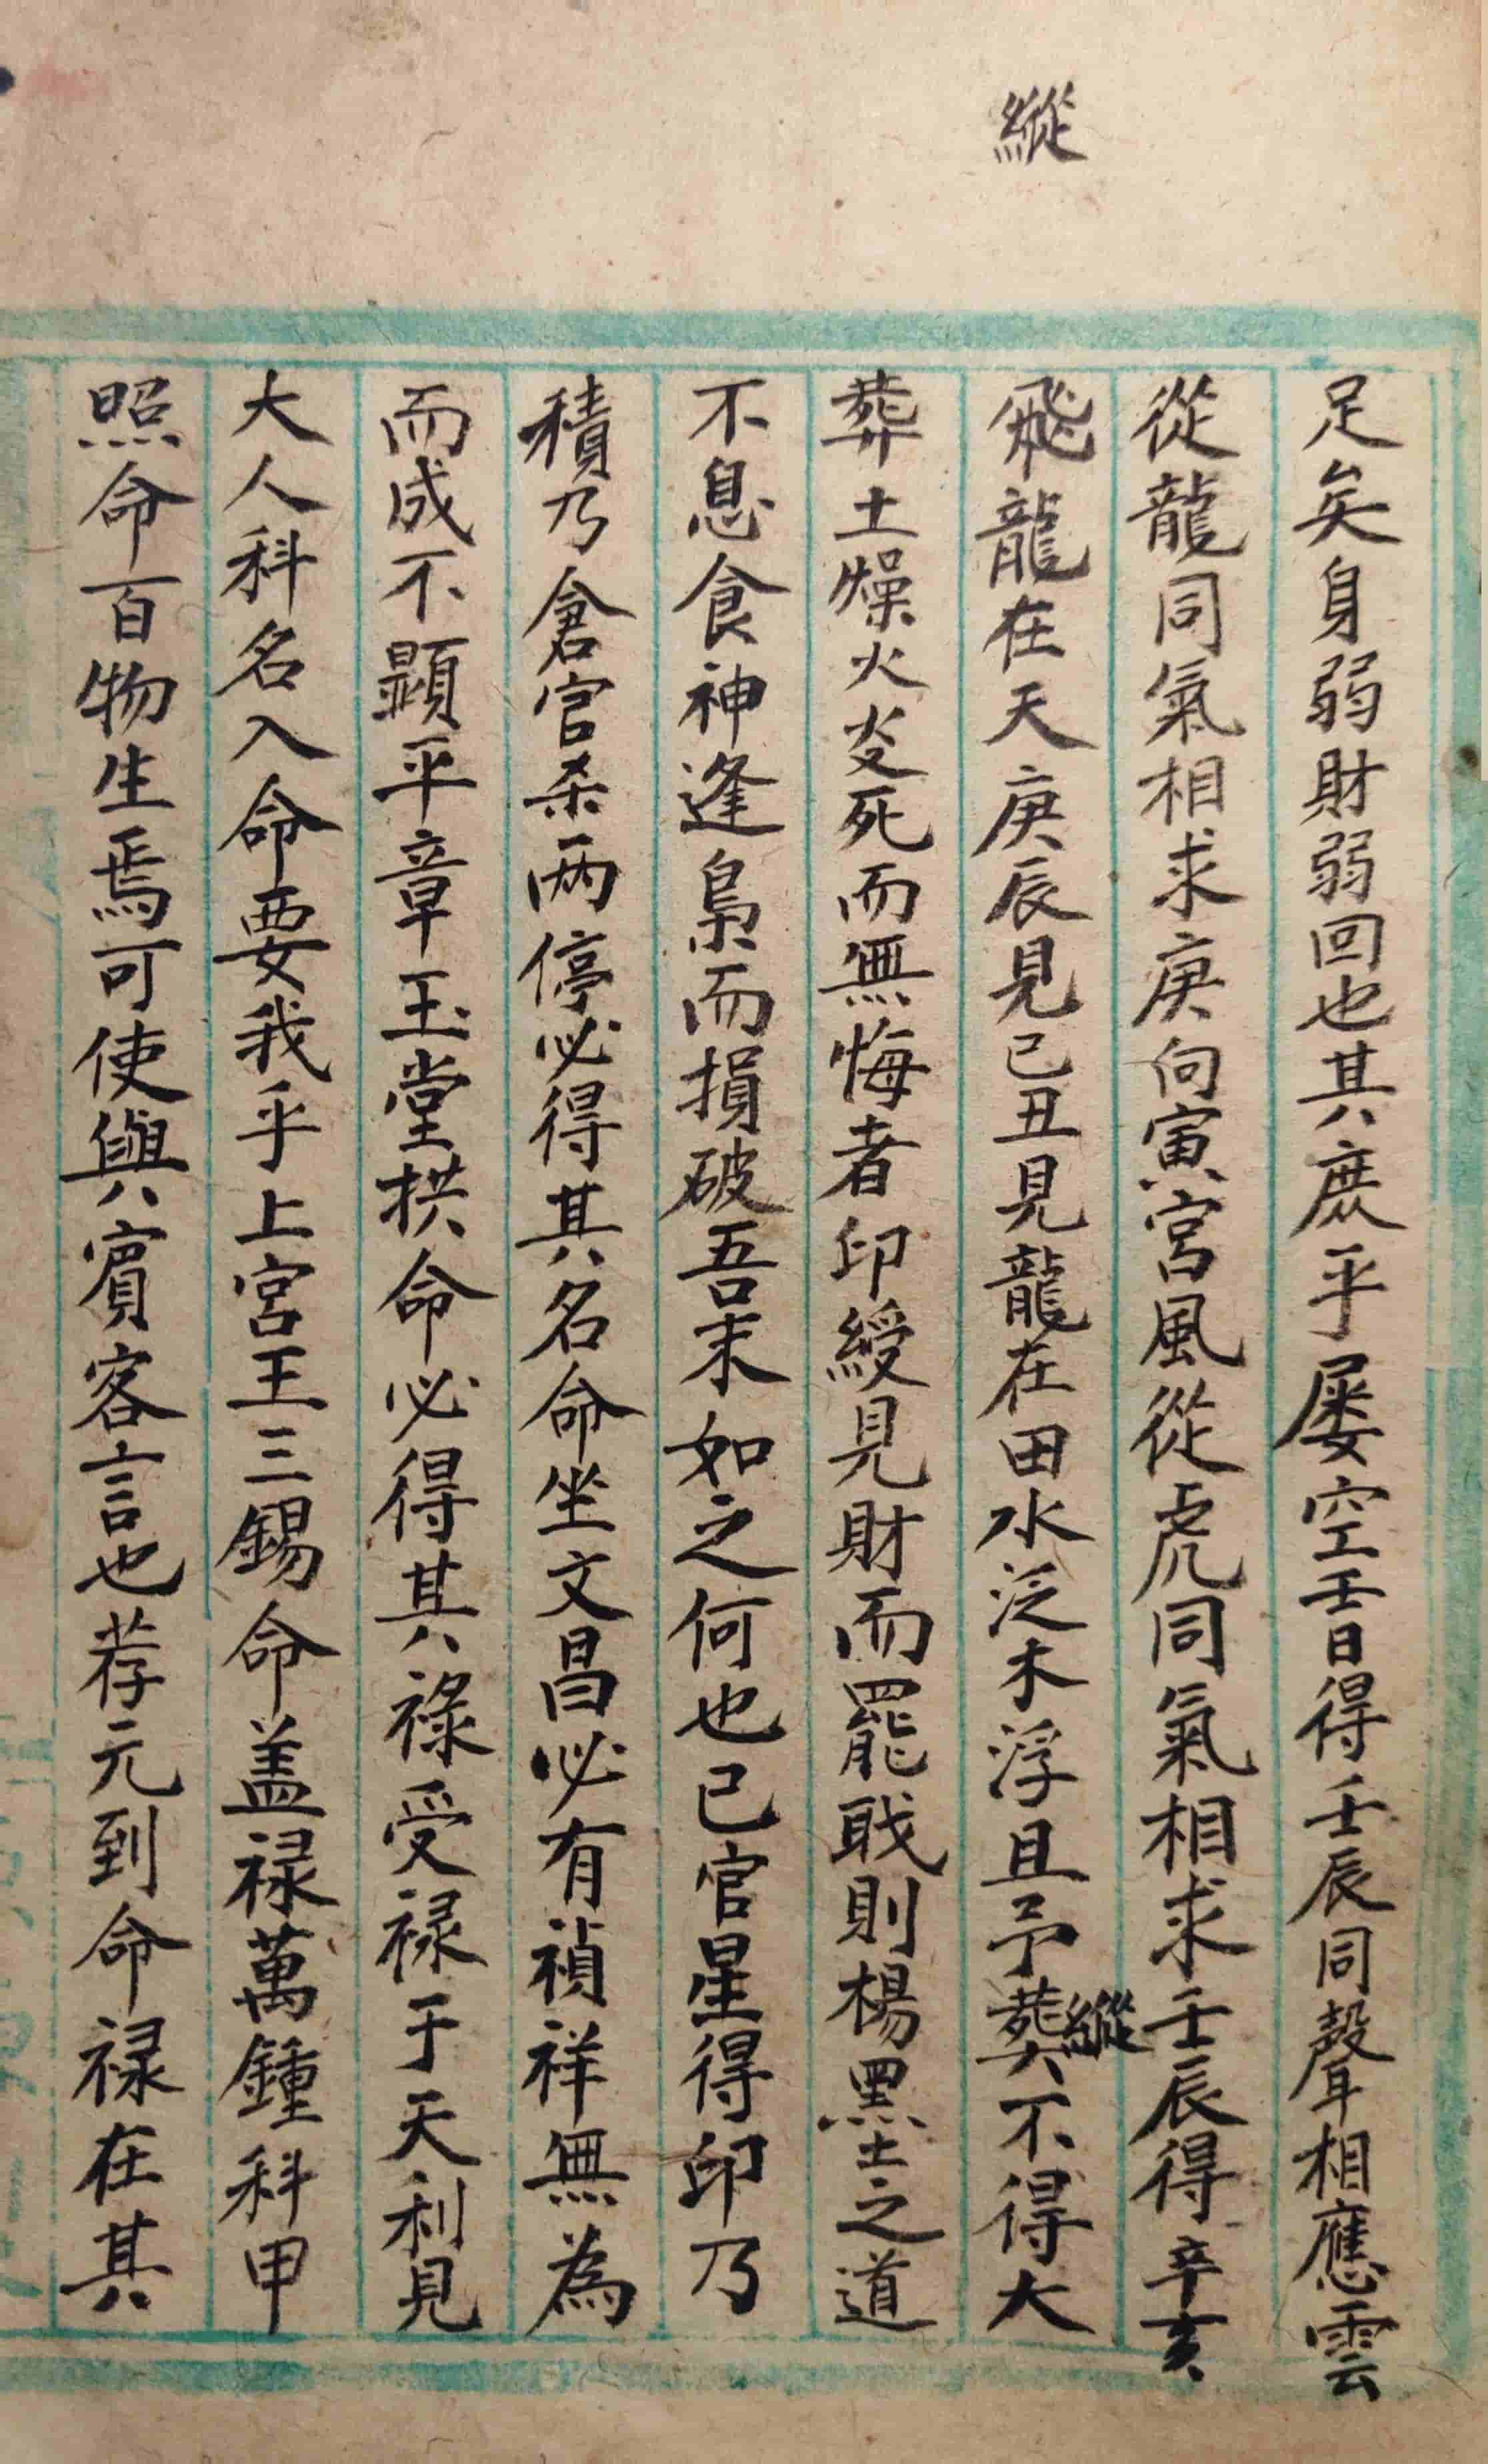 縱
足矣身弱財弱回也其庶乎屡空壬日得壬辰同聲相應雲
從龍同氣相求庚向寅宮風從虎同氣相求壬辰得辛亥
飛龍在天庚辰見己丑見龍在田水泛木浮且予葬縱不得大
葬土燥火炎死而無悔者印綬見財而罷戝則楊墨之道
不息食神逢梟而損破吾末如之何也已官星得印乃
積乃倉官杀両停必得其名命坐文昌必有禎祥無為
而成不顕平章玉堂拱命必得其祿受禄于天利見
大人科名入命要我乎上宮王三錫命盖禄萬鍾科甲
照命百物生焉可使與賓客言也荐元到命禄在其